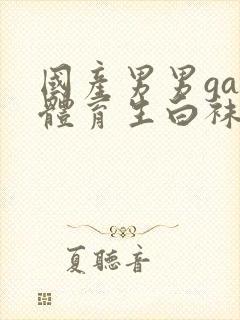 國產男男ga
體育生白袜
夏聽音